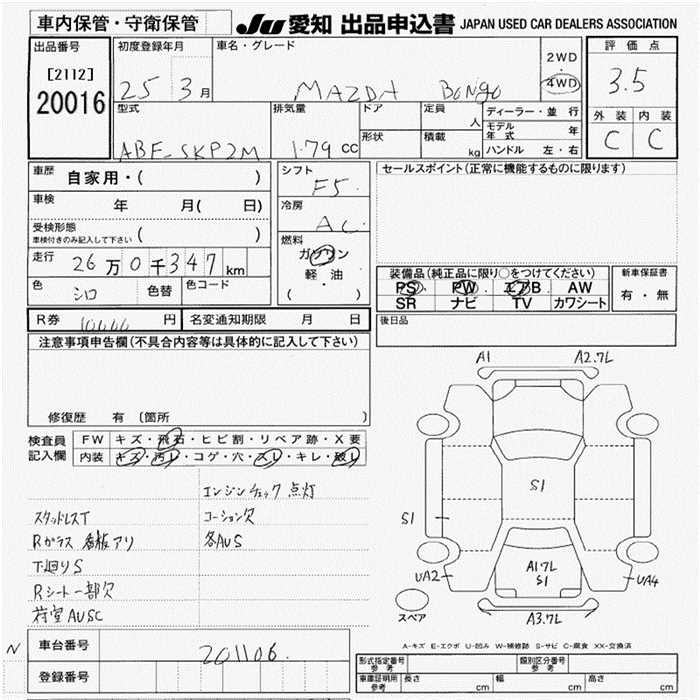 車内保管・守衛保管
JU 愛知 出品申込書 JAPAN USED CAR DEALERS ASSOCIATION
出品番号
[2112]
20016
初度登録年月
25 3月
車名・グレード
MAZDA Bongo
2WD
4WD
評価点
3.5
外装 内装
C C
型式
ABF-SKP2M
排気量
1.79 cc
ドア
形状
定員
人
積載
kg
ディーラー・並行
モデル年式 年
ハンドル 左・右
車歴 自家用・( )
車検 年 月( 日)
受検形態
車検付きのみ記入して下さい ( )
走行 26万0千347km
色 シロ 色替 色コード
シフト
F5
冷房
AC
燃料
ガソリン
軽・油
( ・ )
セールスポイント(正常に機能するものに限ります)
装備品(純正品に限り○をつけてください)
PS PW エアB AW
SR ナビ TV カワシート
新車保証書
有・無
R券 円 名変通知期限 月 日
後日品
注意事項申告欄(不具合内容等は具体的に記入して下さい)
修復歴 有 〔箇所 〕
検査員記入欄
FW キズ・飛石・ヒビ割・リペア跡・X要
内装 キズ・汚レ・コゲ・穴・スレ・キレ・破レ
エンジンチェック点灯
スタッドレスT コーション欠
Rガラス 看板アリ 各AUS
下廻りS
Rシート一部欠
荷室AUSC
A1 A2.7L
S1
S1
A1.7L
S1
UA2 UA4
A3.7L
スペア
A-キズ E-エクボ U-凹み W-補修跡 S-サビ C-腐食 XX-交換済
N
車台番号 201106
登録番号
型式指定番号 参考
類別区分番号 参考
車庫証明用 参考 長さ cm 幅 cm 高さ cm